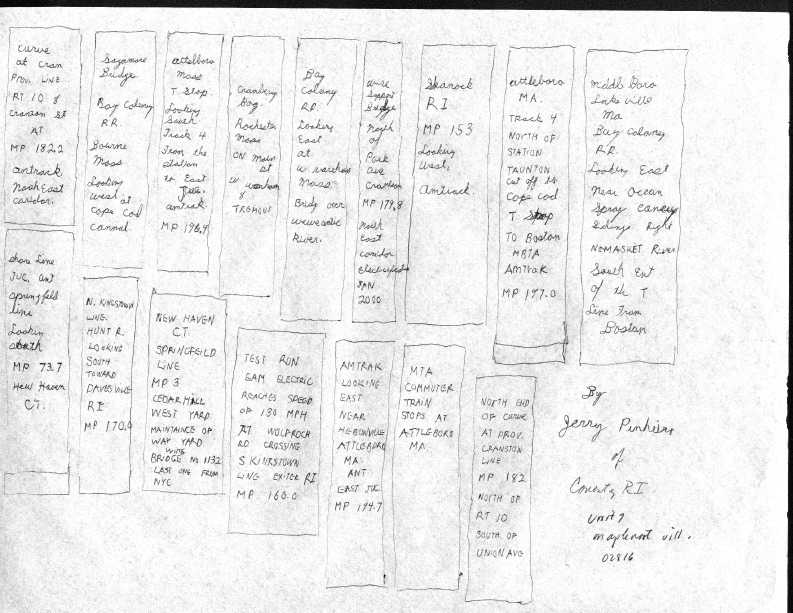 curve
at cran
PROV. LINE
RT 10 &
cranson st
AT
MP 182.2
amtrack
NorhEast
caridor.
Sagamore
Bridge
Bay Colony
R.R.
Bourne
Mass
Looking
west at
Cape Cod
cannal
attelboro
Mass
T Stop.
Looking
South
Track 4
From the
station
to East
Junc.
amtrak
MP 196.9
Cranberry
Bog
Rochester
Mass
ON Main
st
w. wareham
&
TREMONT
Bay
Colony
RR.
Looking
East
at
w. wareham
Mass.
Bridg over
weweantic
River.
wire
Support
Bridge
North
of
Park
ave
Cranston
MP 179.8
North
East
corridor
Electrified
JAN
2000
Shanock
RI
MP 153
Looking
West.
Amtrack.
attleboro
MA.
Track 4
NORTH OF
STATION
TAUNTON
cut off to
Cape Cod
T Stop
TO Boston
MBTA
AMTRAK
MP 197.0
Middl Boro
Lakeville
Ma
Bay Colony
RR.
Looking East
Near Ocean
Spray Canery
Sidings Right
NEMASKET River
South Ent
of the T
Line From
Bostan
shore Line
JUC. ant
springfeld
line
Lookin
south
MP 73.7
New Haven
CT.
N. KINGSTOWN
WNG.
HUNT R.
LOOKING
SOUTH
TOWARD
DAVESVILLE
RI
MP 170.0
NEW HAVEN
CT.
SPRINGFEILD
LINE
MP 3
CEDARHALL
WEST YARD.
MAINTAINCE OF
WAY YARD
WING
BRIDGE No 1132
LAST ONE FROM
NYC
TEST RUN
GAM ELECTRIC
REACHES SPEED
OF 130 MPH
AT WOLFROCK
RD CROSSING
S KINKSTOWN
WNG EXITER RI
MP 160.0
AMTRAK
LOOKING
EAST
NEAR
HEBRONVILLE
ATTLEBORO
MA.
ANT
EAST JUC.
MP 194.7
MTA
COMMUTER
TRAIN
STOPS AT
ATTLEBORO
MA
NORTH END
OF CURVE
AT PROV.
CRANSTON
LINE
MP 182
NORTH OF
RT 10
SOUTH OF
UNION AVE
By
Jerry Pinheiro
of
Coventry R.I.
Unit 7
mapleroot vill.
02816